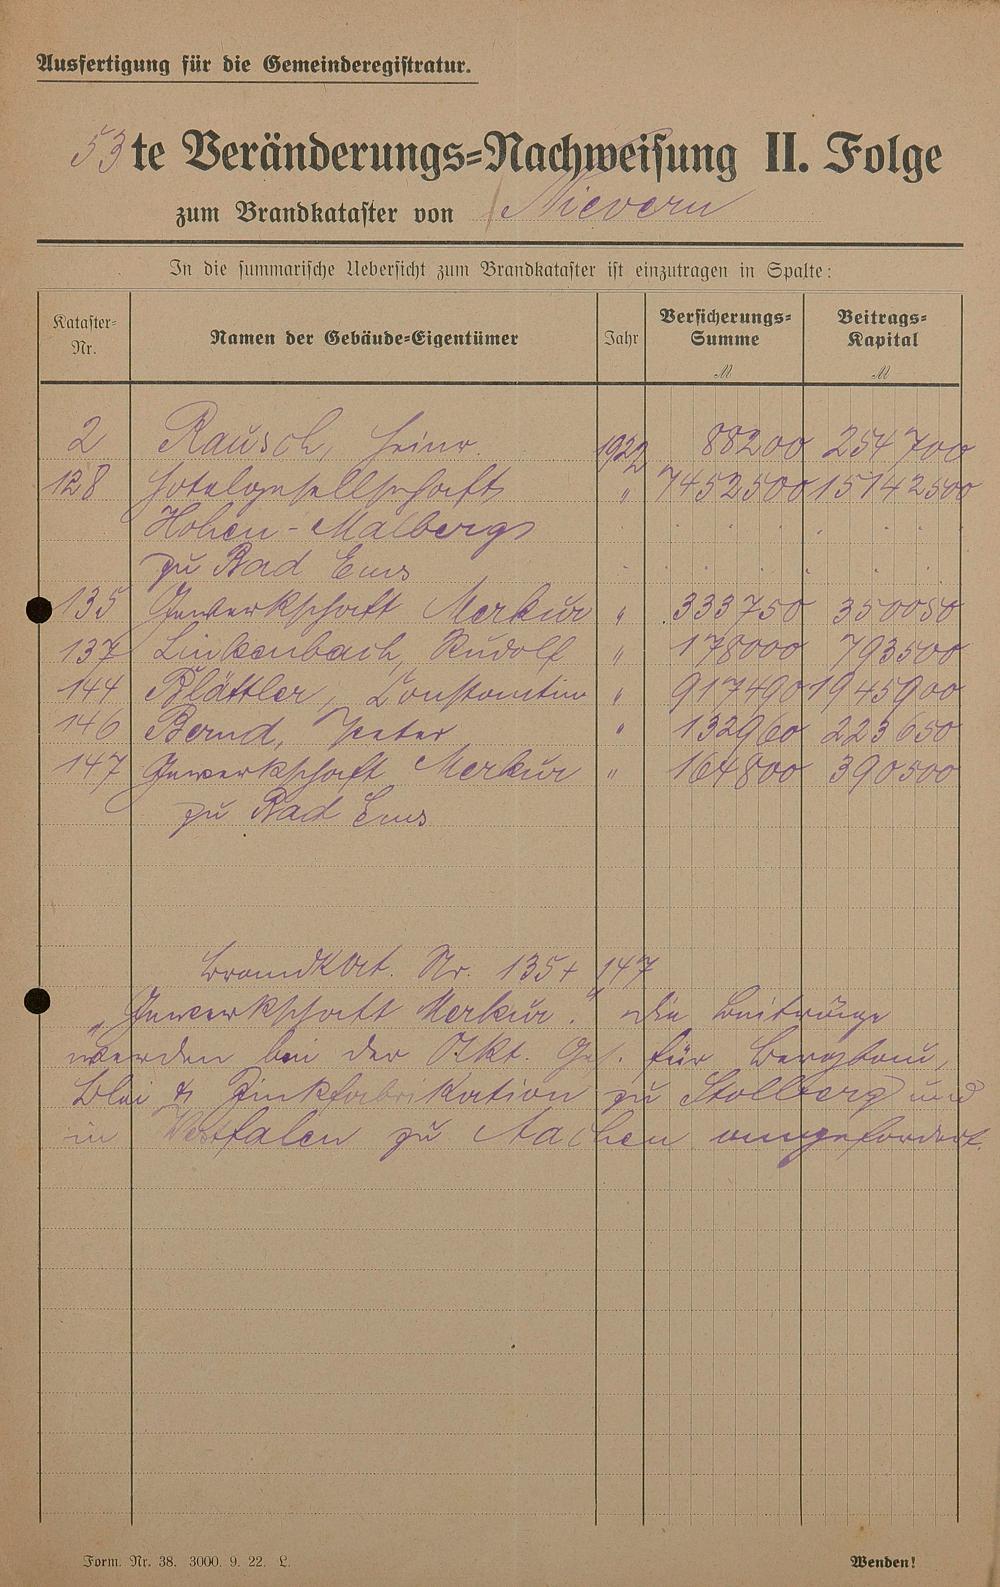 Ausfertigung für die Gemeinderegistratur.
53te Veränderungs=Nachweisung II. Folge
zum Brandkataster von Nievern
In die summarische Uebersicht zum Brandkataster ist einzutragen in Spalte:
Kataster=Nr. Namen der Gebäude=Eigentümer Jahr Versicherungs=Summe M Beitrags=Kapital M
2 Rausch, Heinr. 1922 88200 254700
128 Hotelgesellschaft " 7452500 15142500
Hohen-Malbergs
zu Bad Ems
135 Gewerkschaft Merkur " 333750 350050
137 Linkenbach, Rudolf " 178000 793500
144 Blättler, Constantin " 917490 1945900
146 Bernd, Peter " 132960 223650
147 Gewerkschaft Merkur " 164800 390500
zu Bad Ems
BrandkAt. Nr. 135 + 147
"Gewerkschaft Merkur." Die Beiträge
werden bei der Akt. Ges. für Bergbau,
Blei & Zinkfabrikation zu Stolberg und
in Westfalen zu Aachen angefordert.
Form. Nr. 38. 3000. 9. 22. L.
Wenden!